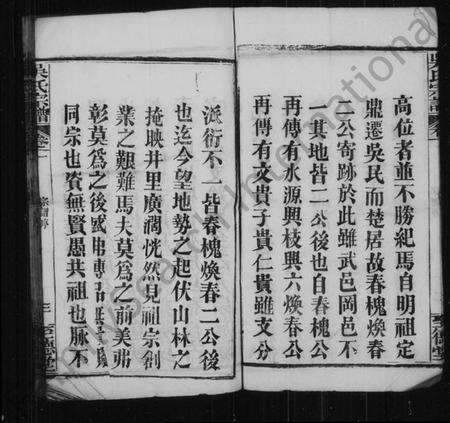 吳氏宗譜
高位者並不勝紀焉自明祖定
鼎遷吳民而楚居故春槐煥春
二公寄跡於此雖武邑岡邑不
一其地皆二公後也自槐公
再傳有水源興枝興六煥春公
再傳有文貴子貴仁貴雖支分
派衍不一皆春槐煥春二公後
也迄今望地勢之起伏山林之
掩映井里廣濶恍然見祖宗創
業之艱難焉夫莫為之前美弗
彰莫為之後國弗傳
同宗也資無賢愚共祖也脈不
吳氏宗譜
卷一
德堂
International